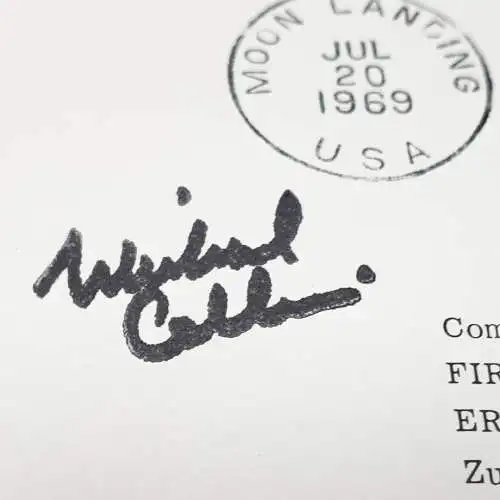 MOON LANDING
JUL
20
1969
USA
Michael
Collins
Com
FIR
ER
Zu